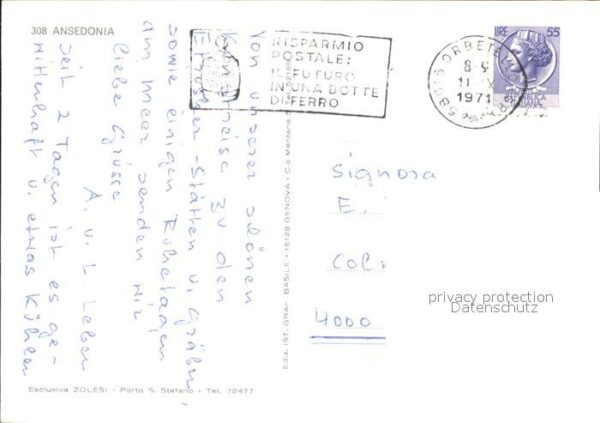 308 ANSEDONIA
RISPARMIO
POSTALE:
IL FUTURO
IN UNA BOTTE
DI FERRO
58015 ORBETE
8-9
11
1971
LIRE 55
REPUBBLICA
ITALIANA
Von unserer schönen
Kunstreise zu den
Etrusker-Stätten u. Gräbern
sowie einigen Ruhetagen
am Meer senden wir
liebe Grüsse
A. u. L. Leben
Seit 2 Tagen ist es ge-
u. etwas kühler
Signora
E.
Col
4000
privacy protection
Datenschutz
Ediz. IST. GRAF. BASILE - 16128 GENOVA - C.o Mentana
Esclusiva ZOLESI - Porto S. Stefano - Tel. 72477